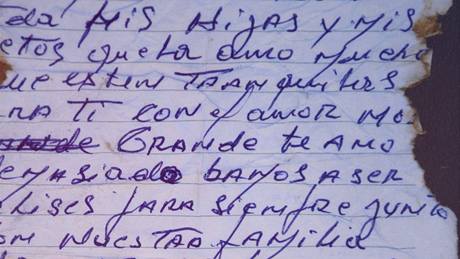 da mis Hijas y mis
etos que ta amo mucho
ue esten TRANquitas
RA Ti con el amor mo
GRANde te AMO
emasiado bamos A ser
elises PARA siempre junto
om NuesTRA FAMiliA